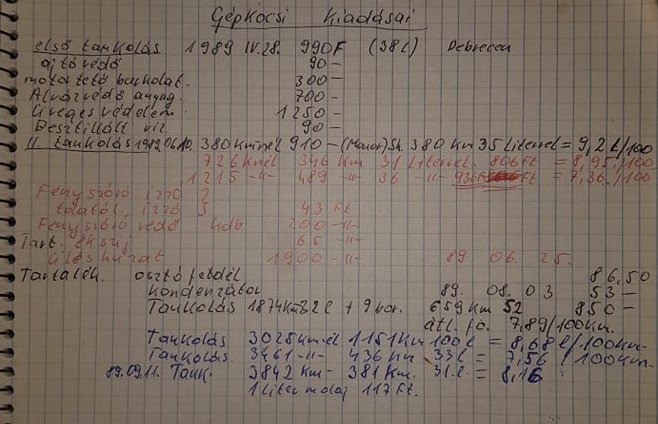 Gépkocsi kiadásai
első tankolás 1989 IV.28. 990F (38l) Debrecen
ajtóvédő 90-
motortető burkolat. 300-
Alvázvédő anyag. 700-
Üveges védelem 1250-
Desztillált víz 90-
II. tankolás 1989.06.10. 380 kmnél 910- (Monor) 380 km 35 literrel = 9,2 l/100
726 kmél 346 km 31 literrel. 806 Ft = 8,95/100
1215 -"- 489 -"- 36 -"- 936Ft = 7,36./100
Fényszóró izzó 2
izzó 3 43 Ft
Fényszóró védő 4db 200 -"-
Tart. ékszíj 65 -"-
üléshuzat 1900 -"- 89 06. 25.
Tartalék. osztó fedél 86,50
Kondenzátor 89. 08. 03 53-
Tankolás 1874 Km 32 l + 9 659 Km 52 850-
átl. fo. 7,89/100km.
Tankolás 3025 kmnél 1151 Km 100 l = 8,68 l/100km-
Tankolás 3461 -"- 436 Km 33 l = 7,56 l/100km-
89.09.11. Tank. 3842 Km- 381 Km. 31 l. = 8,16
1 liter molaj 117 Ft.